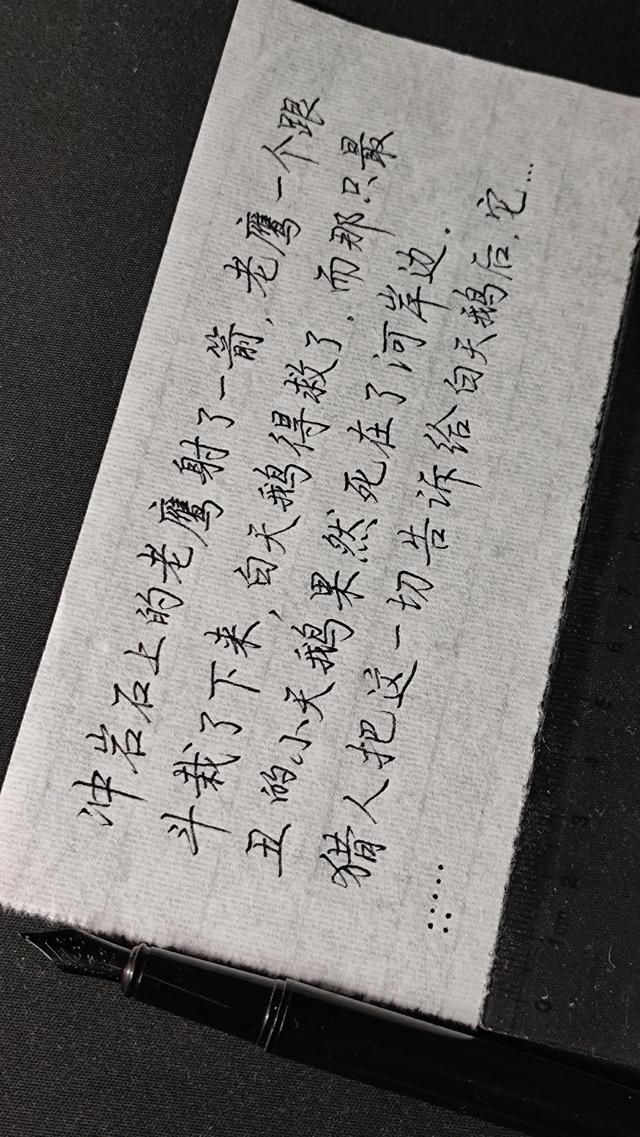 冲岩石上的老鹰射了一箭，老鹰一个跟
斗栽了下来，白天鹅得救了．而那只最
丑的小天鹅果然死在了河岸边．
猎人把这一切告诉给白天鹅后，它…
……
0 1cm 2 3 4 5 6 7 8